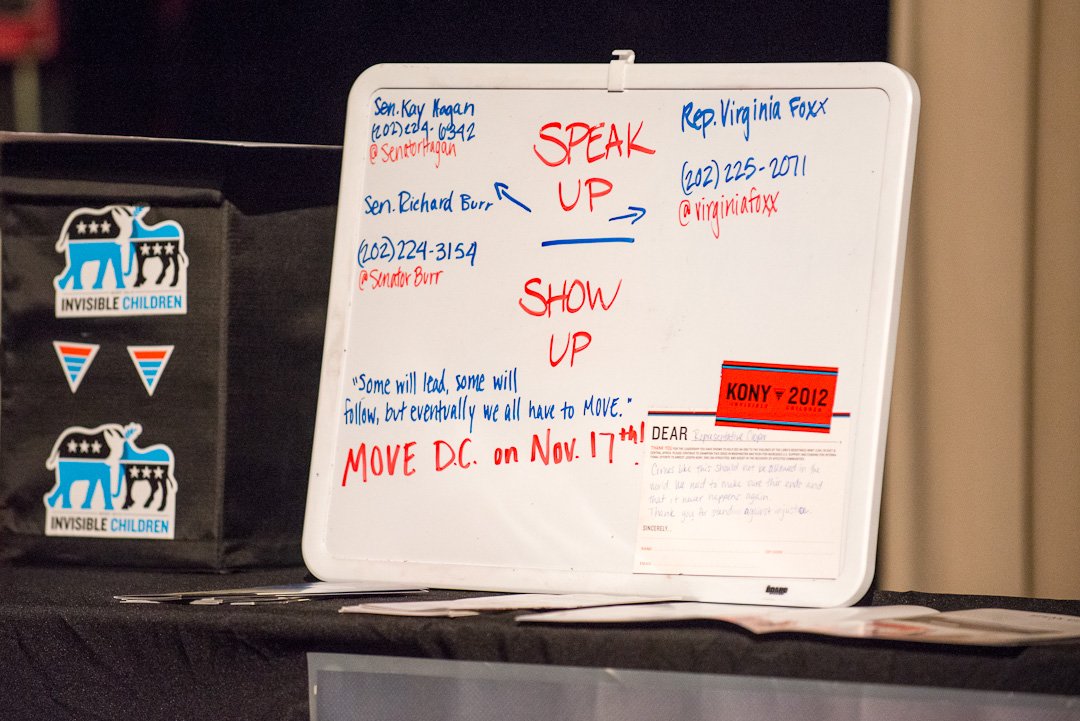 Sen. Kay Hagan
(202) 224-6342
@SenatorHagan
Sen. Richard Burr
(202) 224-3154
@SenatorBurr
SPEAK
UP
Rep. Virginia Foxx
(202) 225-2071
@virginiafoxx
SHOW
UP
"Some will lead, some will
follow, but eventually we all have to MOVE."
MOVE D.C. on Nov. 17th!
KONY 2012
INVISIBLE CHILDREN
DEAR Representative
Crimes like this should not be allowed in the
world. We need to make sure this ends and
that it never happens again.
Thank you for standing against injustice.
SINCERELY,
NAME
EMAIL
BOARD
INVISIBLE CHILDREN
INVISIBLE CHILDREN